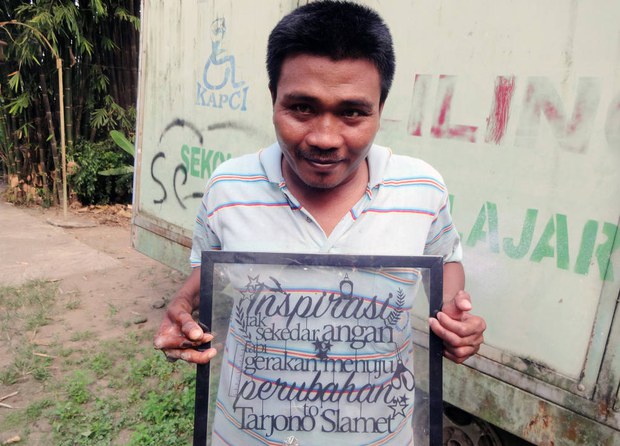 KAPCI
LILING
SEKOL
LAJAR
inspirasi
tak
sekedar angan
tapi
gerakan menuju
perubahan
to
Tarjono Slamet